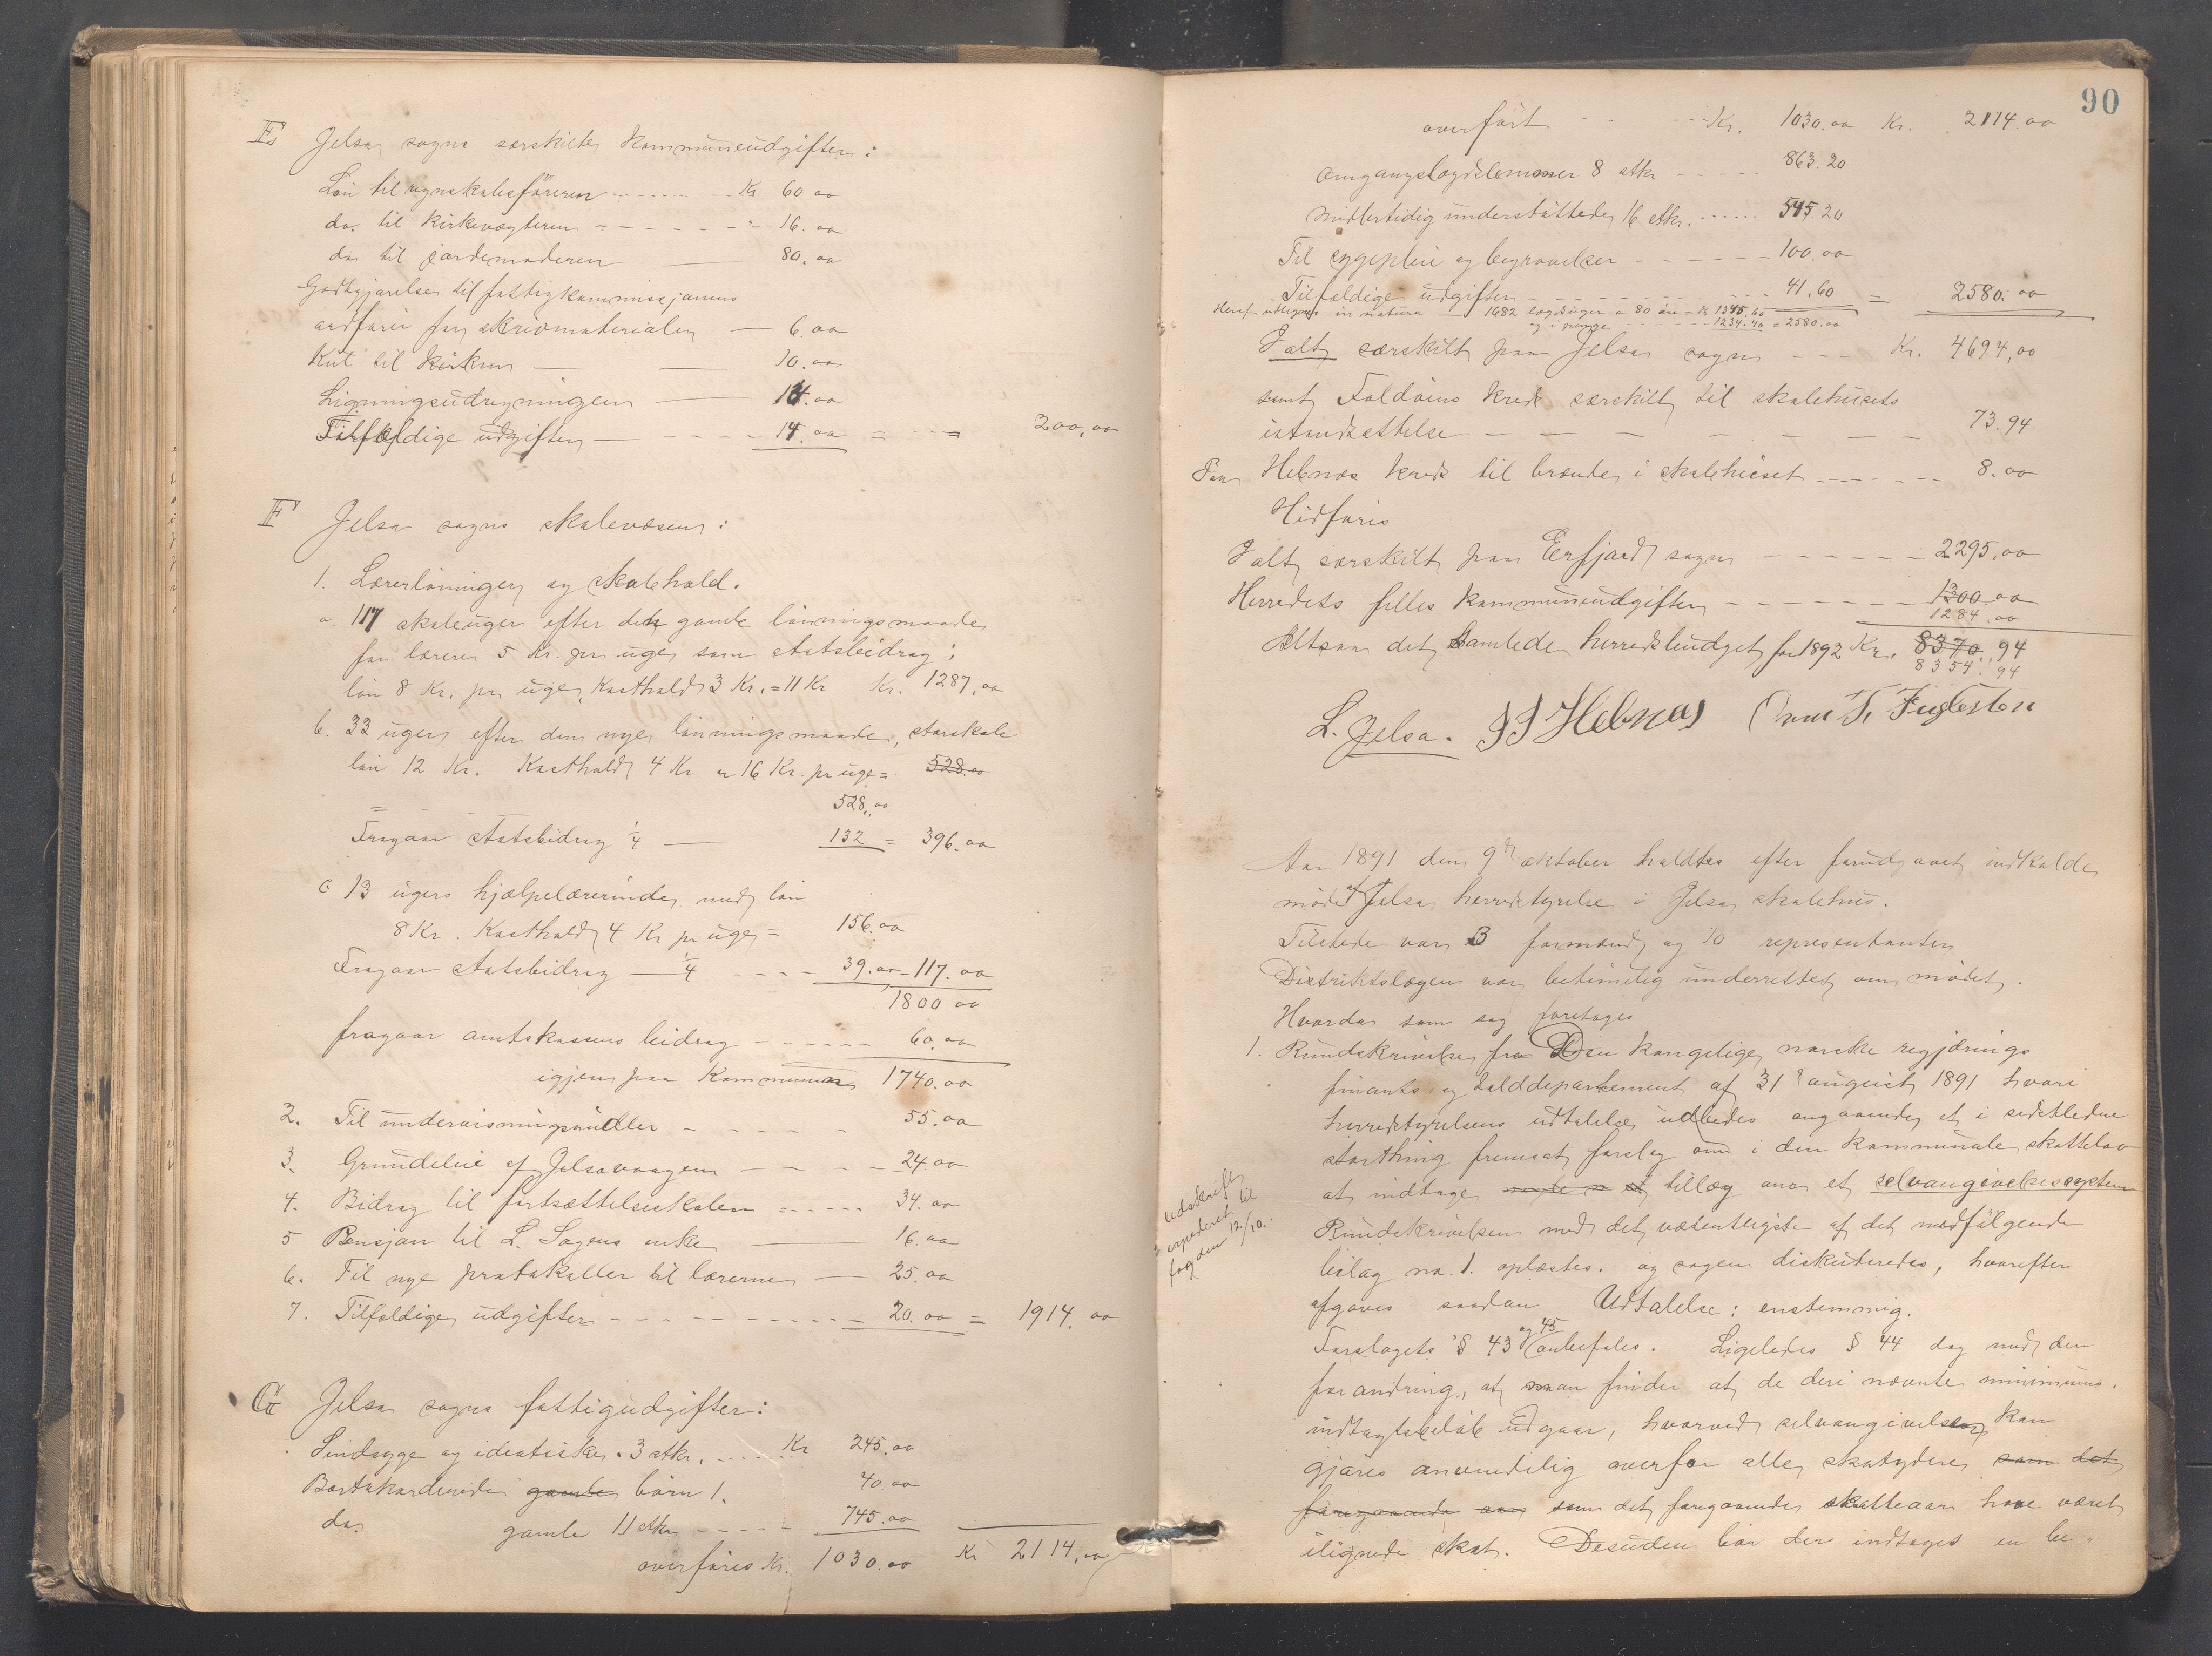 E Jelsa sogns særskilte kommuneudgifter:
Løn til regnskabsføreren Kr 60 00
do. til kirkevægteren 16.00
do til jordemoderen 80.00
Godtgjørelse til fattigkommissjonens
ordfører for skrivmaterialer 6.00
Kut til kirken 10.00
Ligningsudregningen 14.00
Tilfældige udgifter 14.00 = 200,00
F Jelsa sogns skolevæsen:
1. Lærerlønninger og skolehold.
a 117 skoleuger efter den gamle lønningsmaade
for lærere 5 Kr. pr uge som statsbidrag;
løn 8 Kr. pr uge, Kosthold 3 Kr. = 11 Kr Kr. 1287,00
b. 33 uger efter den nye lønningsmaade, storskole
løn 12 Kr. Kosthold 4 Kr er 16 Kr. pr uge = 528.00
528,00
Fragaar statsbidrag 1/4 132 = 396.00
c 13 ugers hjælpelærerinde med løn
8 Kr. Kosthold 4 Kr pr uge = 156.00
Fragaar statsbidrag 1/4 39.00 - 117.00
1800 00
fragaar amtskassens bidrag 60.00
igjen paa Kommunen 1740.00
2. Til undervisningsmidler 55.00
3. Grundleie af Jelsavaagen 24.00
4. Bidrag til fortsættelsesskolen 34.00
5 Pensjon til L. Sogens enke 16.00
6. Til nye protokoller til lærerne 25.00
7. Tilfældige udgifter 20.00 = 1914.00
G Jelsa sogns fattigudgifter:
Sindsyge og idiotiske 3 stkr. Kr 245.00
Bortakorderede gamle børn 1. 40.00
do. gamle 11 stkr 745.00
overføres Kr. 1030.00 Kr 2114,00
90
overført Kr. 1030.00 Kr. 2114.00
Omgangslægdslemmer 8 stkr 863.20
Midlertidig understøttede 16 stkr. 545.20
Til sygepleie og begravelser 100.00
Tilfældige udgifter 41.60 = 2580.00
Heraf udlignes in natura 1682 lægdsuger a 80 øre = Kr 1345.60
og i penge 1234.40 = 2580.00
Ialt særskilt paa Jelsa sogn Kr. 4694,00
samt Foldøens kreds særskilt til skolehusets
istandsættelse 73.94
Paa Hebnes kreds til brænde i skolehuset 8.00
Hidføres
Ialt særskilt paa Erfjord sogn 2295.00
Herredets fælles kommuneudgifter 1300.00
1284.00
Altsaa det samlede herredsbudget for 1892 Kr. 8370.94
8354.94
L. Jelsa. J J Hebnes
Aar 1891 den 9de oktober holdtes efter forudgaaet indkalde
møde af Jelsa herredstyrelse i Jelsa skolehus.
Tilstede var 3 formænd og 10 repræsentanter
Distriktslægen var betimelig underrettet om mødet.
Hvorda som sag foretoges
1. Rundskrivelse fra Den kongelige norske regjerings
finants og tolddepartement af 31te august 1891 hvori
herredstyrelsens udtalelse udbedes angaaende et i sidstledne
storthing fremsat forslag om i den kommunale skattelov
at indtage et tillæg om et selvangivelsessystem
Rundskrivelsen med det væsentligste af det medfølgende
bilag no. 1. oplæstes. og sagen diskuteredes, hvorefter
afgaves saadan Udtalelse: enstemmig.
udskrift
expederet til
fogden 12/10.
Forslagets § 43 og 45 anbefales. Ligeledes § 44 dog med den
forandring, at man finder at de deri nævnte minimums.
indtægtsbeløb udgaar, hvorved selvangivelsen kan
gjøres anvendelig overfor alle skatydere som det
foregaaende aar som det foregaaende skatteaar have været
ilignede skat. Desuden bør der indtages en be-